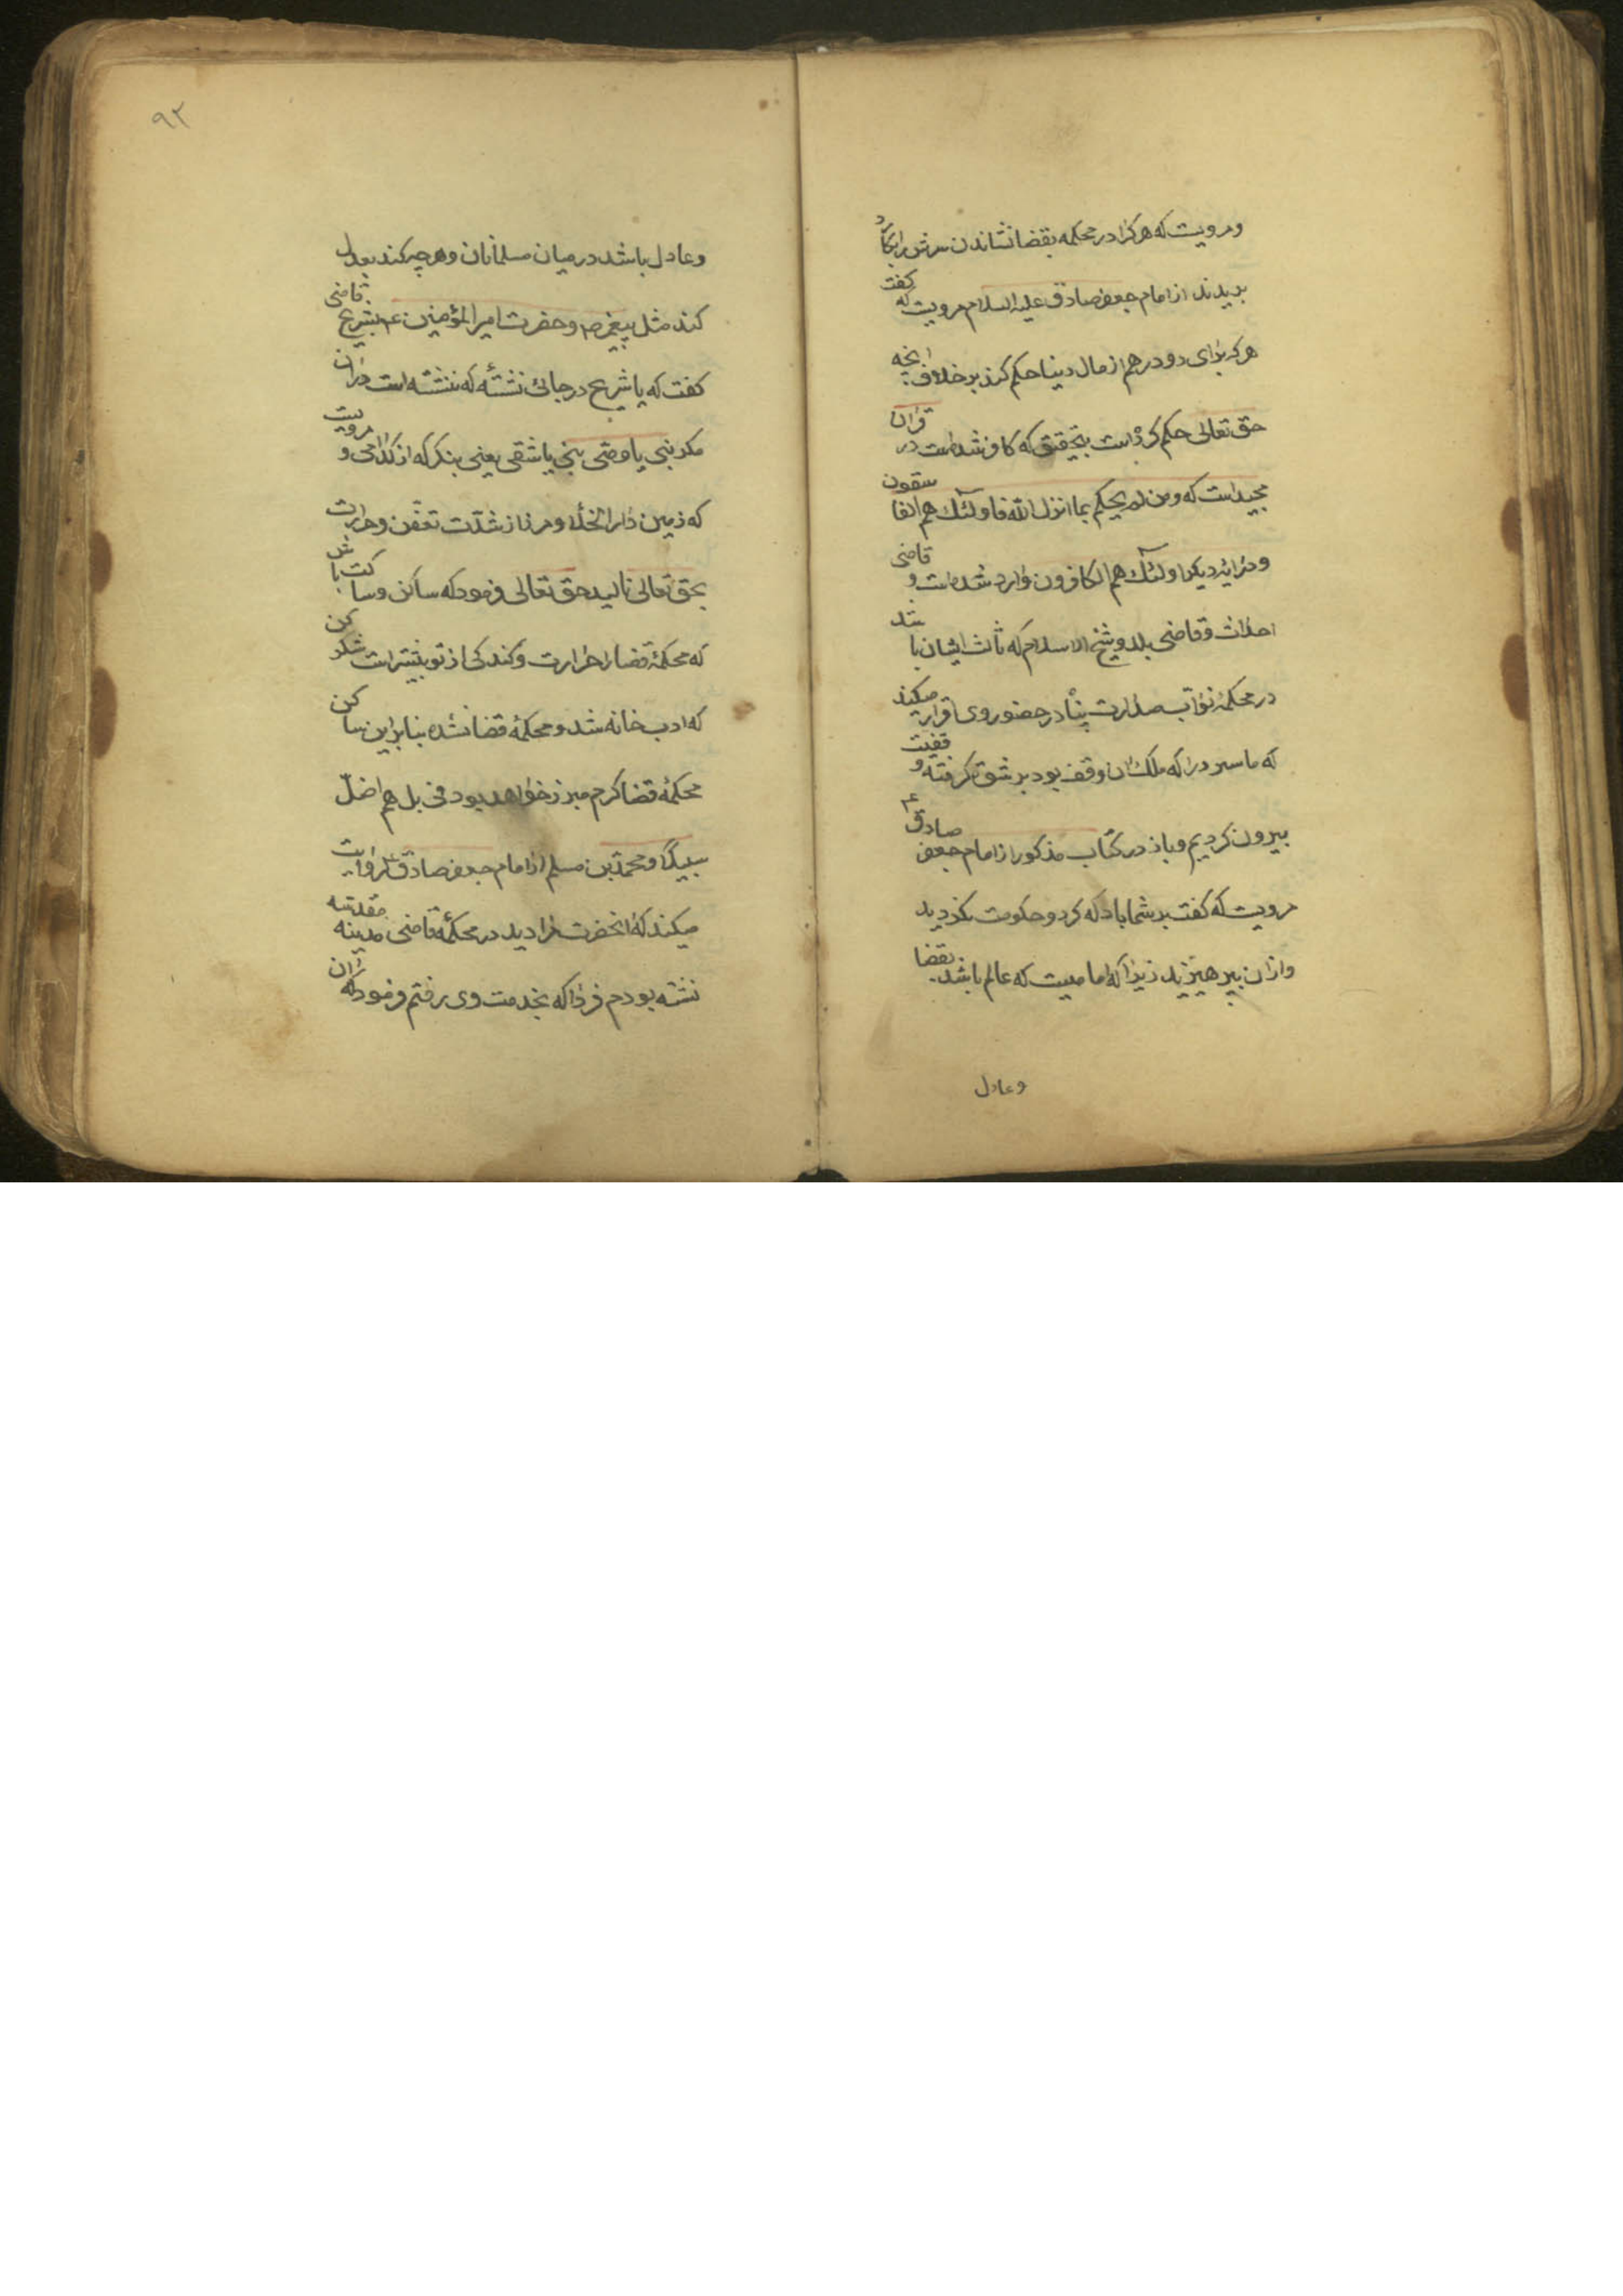 ومرویت که هرکرا در محکمه بقضا نشاندن سرش را بکارد
بریدند از امام جعفر صادق علیه السلام مرویت که گفت
هرکه برای دو درهم از مال دنیا حکم کرد بر خلاف آنچه
حق تعالی حکم کرده است بتحقیق که کافر شده است در قرآن
مجید است که ومن لم یحکم بما انزل الله فاولئک هم الفاسقون
و در آیه دیگر اولئک هم الکافرون وارد شده است و قاضی
احداث و قاضی بلد و شیخ الاسلام که ثالث ایشان باشد
در محکمه نواب صدارت پناه در حضور وی اقرار میکند
که ما سر در را که ملک آن وقف بود برشوة گرفته و وقفیت
بیرون کردیم و باز در کتاب مذکور از امام جعفر صادق ع
مرویت که گفت بر شما باد که گرد حکومت نگردید
و از آن بپرهیزید زیرا که امامیست که عالم باشد بقضا
وعادل
۹۲
وعادل باشد در میان مسلمانان و هرچه کند بعدل
کند مثل پیغمبر ص و حضرت امیر المؤمنین ع بشریح قاضی
گفت که یا شریح در جائی نشستۀ که ننشسته است در آن
مگر نبی یا وصی نبی یا شقی یعنی بنگر که از کدامی و مرویست
که زمین دار الخلا و مرزا از شدت تعفن و حرارت
بحق تعالی نالید حق تعالی فرمود که ساکن و ساکت باش
که محکمۀ قضا را حرارت و گندگی از تو بیشتر است شکر کن
که ادب خانه شد و محکمۀ قضا نشده بنابراین ساکن
محکمۀ قضا کرم مبرز خواهد بود فی بل هم اضل
سبیلا و محمد بن مسلم از امام جعفر صادق ع روایت
میکند که آنحضرت مرا دید در محکمۀ قاضی مدینه مقدسه
نشسته بودم فردا که بخدمت وی رفتم فرمود که از آن